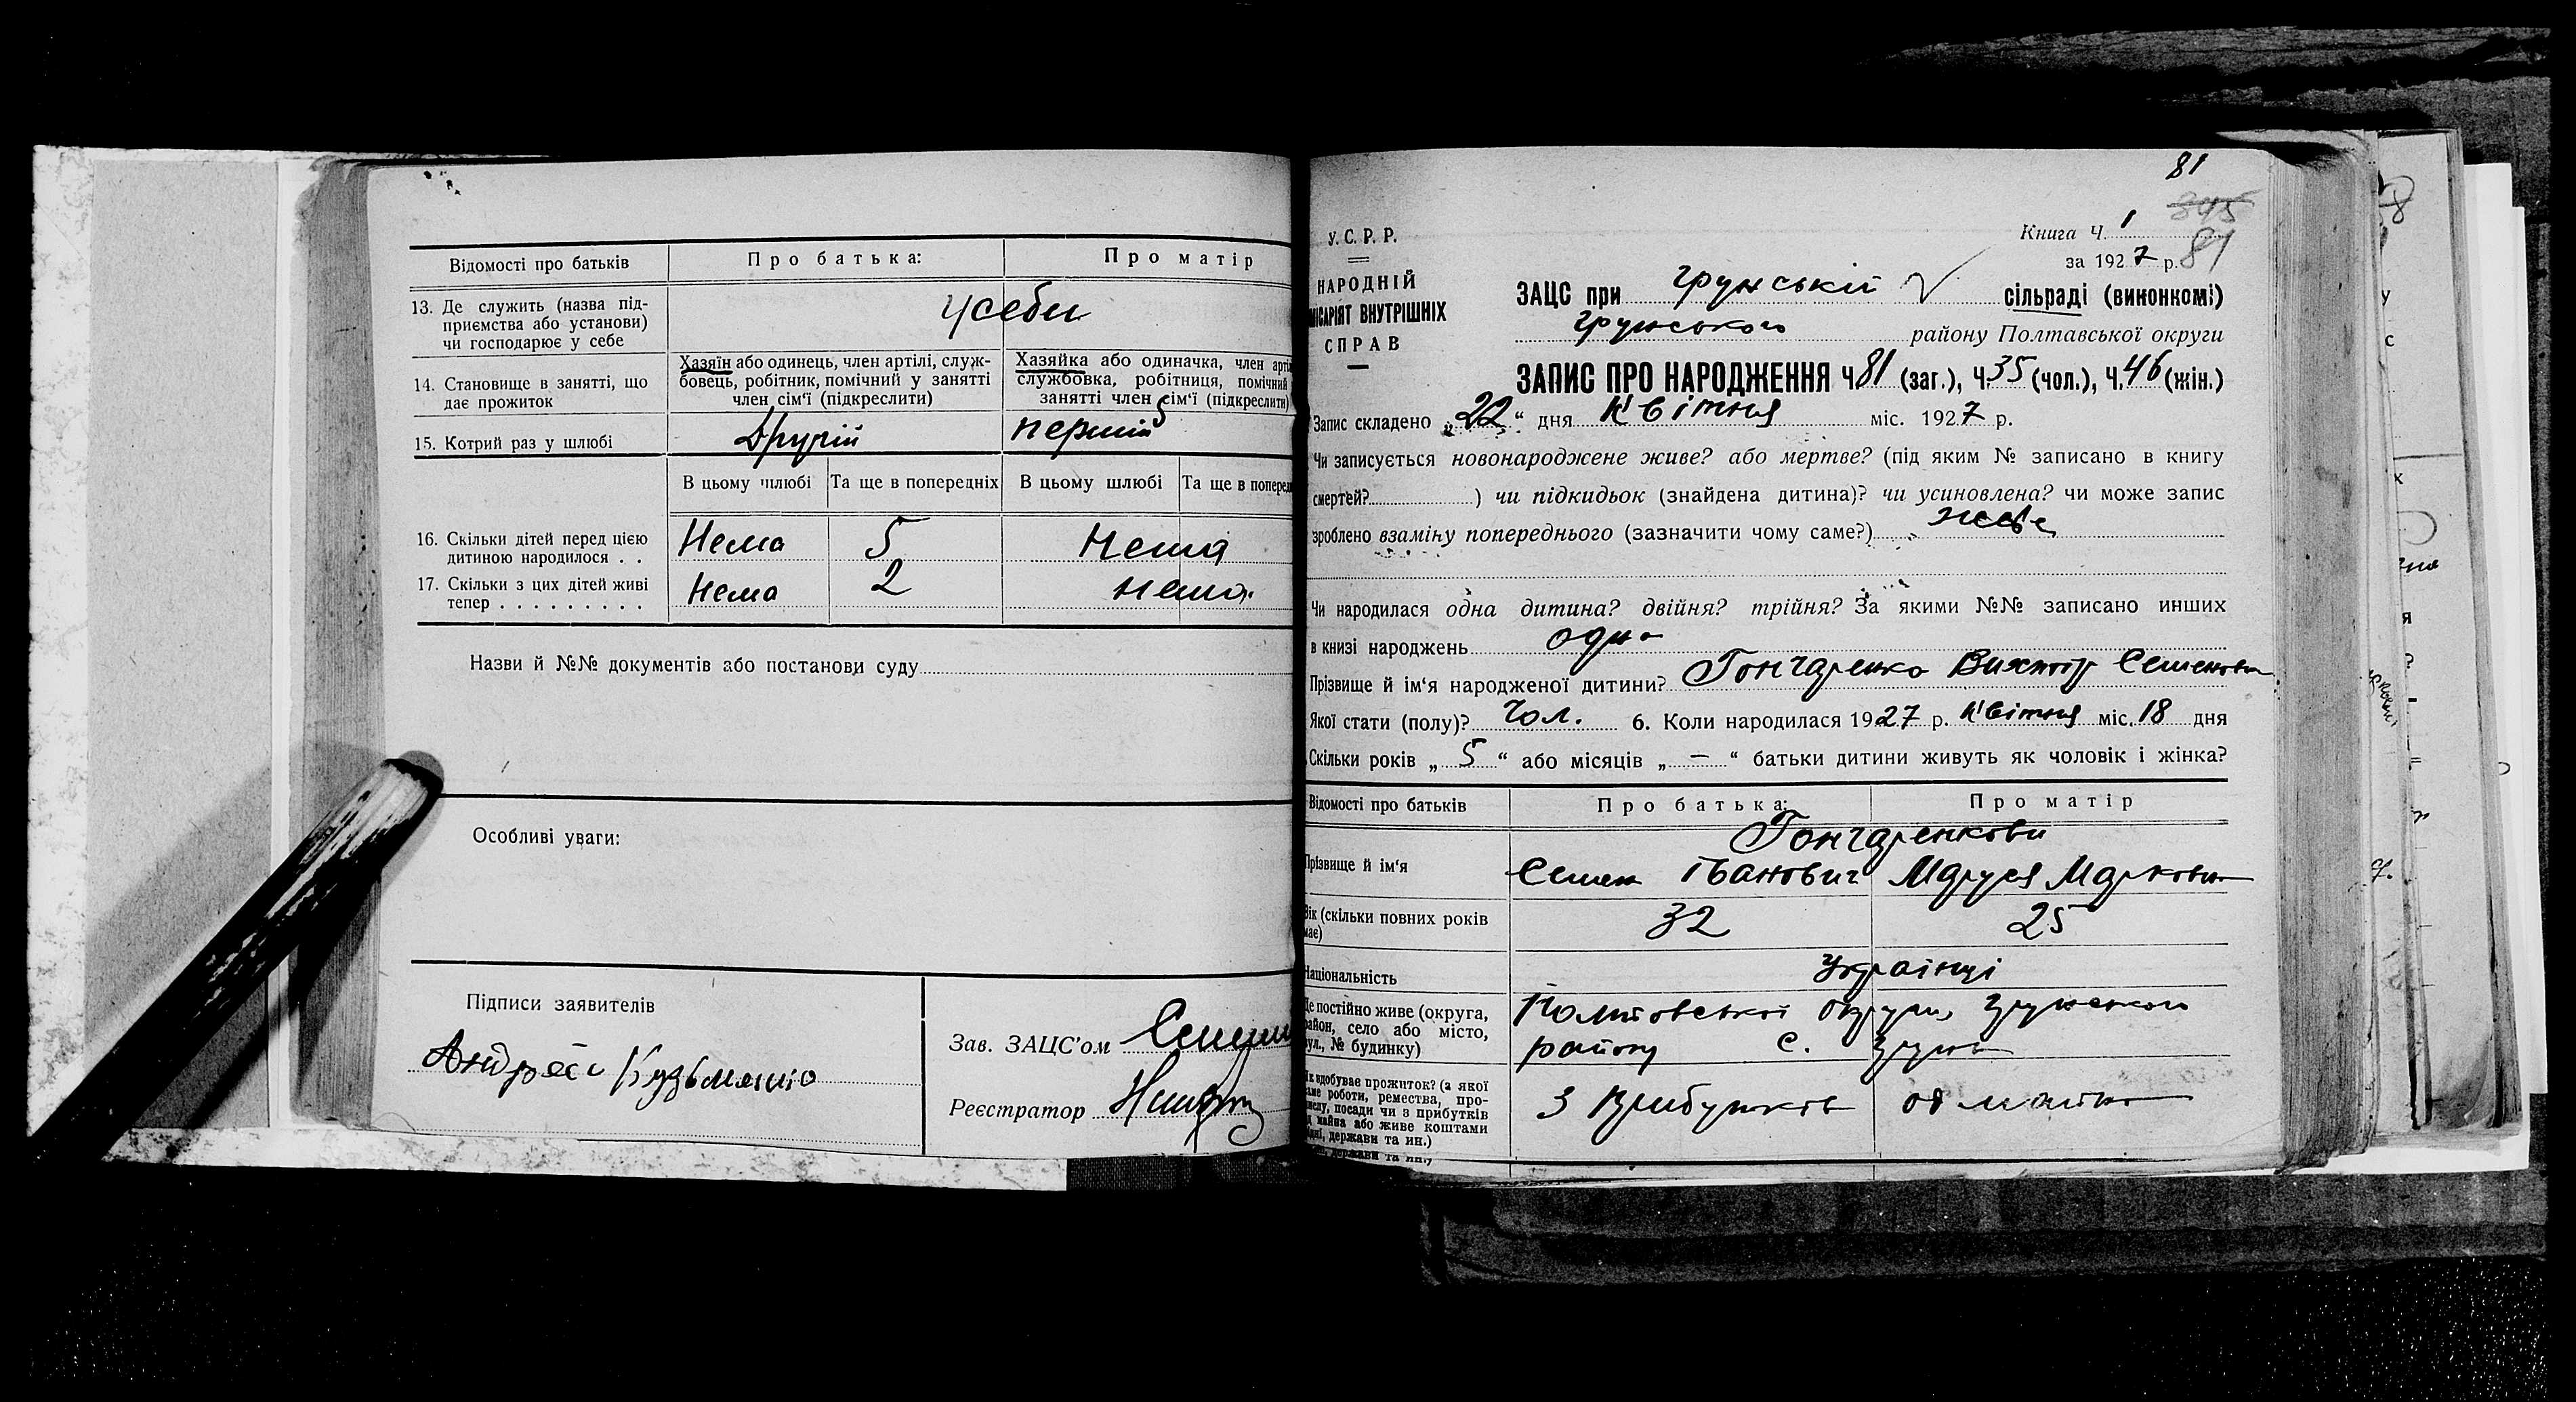 Відомості про батьків
Про батька:
Про матір
13. Де служить (назва під-
приємства або установи)
чи господарює у себе
усебе
14. Становище в занятті, що
дає прожиток
Хазяїн або одинець, член артілі, служ-
бовець, робітник, помічний у занятті
член сім'ї (підкреслити)
Хазяйка або одиначка, член арті
службовка, робітниця, помічний
занятті член сім'ї (підкреслити)
15. Котрий раз у шлюбі
Другій
перший
В цьому шлюбі
Та ще в попередніх
В цьому шлюбі
Та ще в поперед
16. Скільки дітей перед цією
дитиною народилося . .
Нема
5
Нема
17. Скільки з цих дітей живі
тепер . . . . . . . . .
Нема
2
нема
Назви й №№ документів або постанови суду
Особливі уваги:
Підписи заявителів
Кузьменко
Зав. ЗАЦС'ом
Реєстратор
81
845
81
У. С. Р. Р.
НАРОДНІЙ
МІСАРІЯТ ВНУТРІШНІХ
СПРАВ
Книга Ч. 1
за 1927 р.
ЗАЦС при грунській сільраді (виконкомі)
грунського району Полтавської округи
ЗАПИС ПРО НАРОДЖЕННЯ Ч 81 (заг.), Ч. 35 (чол.), Ч. 46 (жін.)
Запис складено „22“ дня квітня міс. 1927 р.
Чи записується новонароджене живе? або мертве? (під яким № записано в книгу
смертей? ) чи підкидьок (знайдена дитина)? чи усиновлена? чи може запис
зроблено взаміну попереднього (зазначити чому саме?) живе
Чи народилася одна дитина? двійня? трійня? За якими №№ записано инших
в книзі народжень одна
Прізвище й ім'я народженої дитини? Гончаренко Виктор Семенов
Якої стати (полу)? Чол. 6. Коли народилася 1927 р. квітня міс. 18 дня
Скільки років „5“ або місяців „—“ батьки дитини живуть як чоловік і жінка?
Відомості про батьків
Про батька:
Про матір
Гончаренкови
Прізвище й ім'я
Семен Іванович
Маруся Маркови
Вік (скільки повних років
має)
32
25
Національність
Українці
Де постійно живе (округа,
район, село або місто,
вул., № будинку)
Полтовської округи, грунського
району с. грунь
Як здобуває прожиток? (з якої
саме роботи, ремества, про-
мислу, посади чи з прибутків
від майна або живе коштами
рідні, держави та ин.)
З прибутків од майна